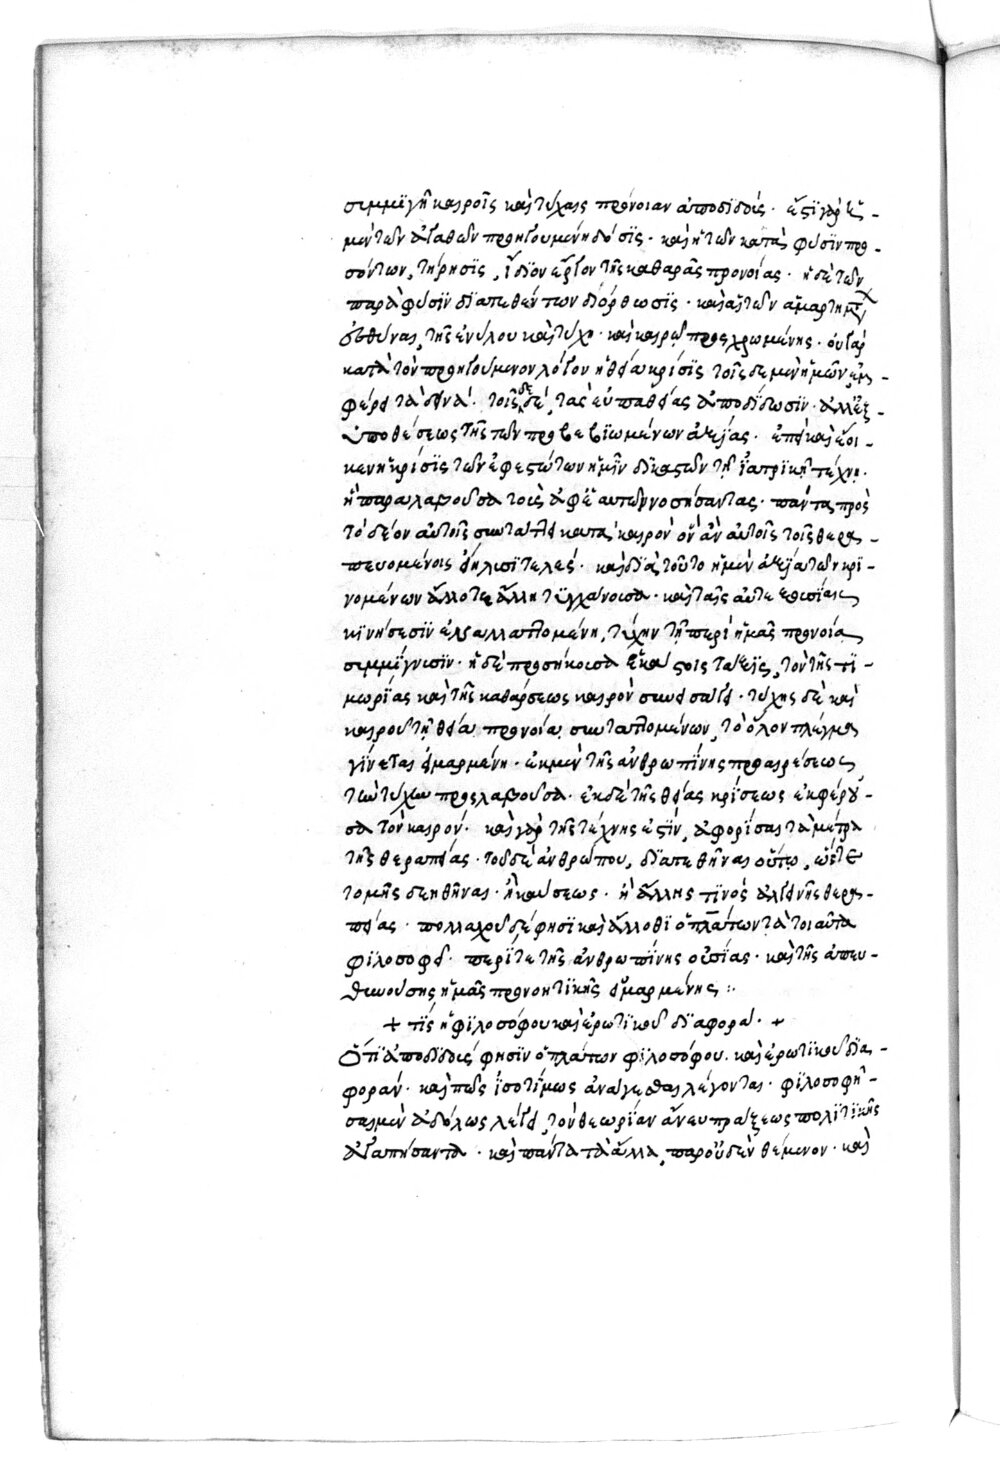 συμμιγῆ καιροῖς καὶ τύχαις πρόνοιαν ἀποδίδως· ἔστι γὰρ ἡ
μὲν τῶν ἀγαθῶν προηγουμένη δόσις· καὶ ἡ τῶν κατὰ φύσιν προ-
σόντων, τήρησις, ἴδιον ἔργον τῆς καθαρᾶς προνοίας· ἡ δὲ τῶν
παρὰ φύσιν διατεθέντων διόρθωσις· καὶ αἱ τῶν ἁμαρτημάτων
εὔθυναι, τῆς ἐνύλου καὶ τύχῃ· καὶ καιρῷ προσχρωμένης· οὐ γὰρ
κατὰ τὸν προηγούμενον λόγον ἡ θεία κρίσις τοῖς δε μὲν ἡμῶν, ἐπι-
φέρει τὰ δεινά· τοῖς δὲ, τὰς εὐπαθείας ἀποδίδωσιν· ἀλλ' ἐξ-
ὑποθέσεως τῆς τῶν προβεβιωμένων ἀξίας· ἐπεὶ καὶ ἔοι-
κεν ἡ κρίσις τῶν ἐφεστώτων ἡμῖν δικαστῶν τῇ ἰατρικῇ τέχνῃ·
ἣ παραλαβοῦσα τοὺς ἀφ' ἑαυτῶν νοσήσαντας· πάντα πρὸς
τὸ δέον αὐτοῖς συντάττει κατὰ καιρὸν ὃν ἂν αὐτοῖς τοῖς θερα-
πευομένοις ᾖ λυσιτελές· καὶ διὰ τοῦτο ἡ μὲν ἀξία τῶν κρι-
νομένων ἄλλοτε ἄλλη τυγχάνουσα· καὶ ταῖς αὐτεξουσίαις
κινήσεσιν ἐξαλλαττομένη, τύχην τῇ περὶ ἡμᾶς προνοίᾳ
συμμίγνυσιν· ἡ δὲ προσήκουσα ἑκάστοις τάξις, τὸν τῆς τι-
μωρίας καὶ τῆς καθάρσεως καιρὸν συνεισάγει· τύχης δὲ καὶ
καιροῦ τῇ θείᾳ προνοίᾳ συνταττομένων, τὸ ὅλον πλέγμα
γίνεται εἱμαρμένη· ἐκ μὲν τῆς ἀνθρωπίνης προαιρέσεως
τὴν τύχην προσλαβοῦσα· ἐκ δὲ τῆς θείας κρίσεως ἐκφέρου-
σα τὸν καιρόν· καὶ γὰρ τῆς τέχνης ἐστὶν, ἀφορίσαι τὰ μέτρα
τῆς θεραπείας· τοῦ δὲ ἀνθρώπου, διατεθῆναι οὕτω, ὥστε
τομῆς δεηθῆναι· ἢ καύσεως· ἢ ἄλλης τινὸς ἀλγεινῆς θερα-
πείας· πολλαχοῦ δέ φησι καὶ ἄλλοθι ὁ πλάτων τὰ τοιαῦτα
φιλοσοφεῖ· περί τε τῆς ἀνθρωπίνης οὐσίας· καὶ τῆς ἀπευ-
θυνούσης ἡμᾶς προνοητικῆς εἱμαρμένης :·
+ τίς ἡ φιλοσόφου καὶ ἐρωτικοῦ διαφορά· +
Ὅτι ἀποδίδως φησὶν ὁ πλάτων φιλοσόφου· καὶ ἐρωτικοῦ δια-
φοράν· καὶ πῶς ἰσοτίμως ἀνάγεσθαι λέγονται· φιλοσοφή-
σαι μὲν ἀδόλως λέγει, τὸν θεωρίαν ἄνευ πράξεως πολιτικῆς
ἀγαπήσαντα· καὶ πάντα τὰ ἄλλα, παρ' οὐδὲν θέμενον· καὶ